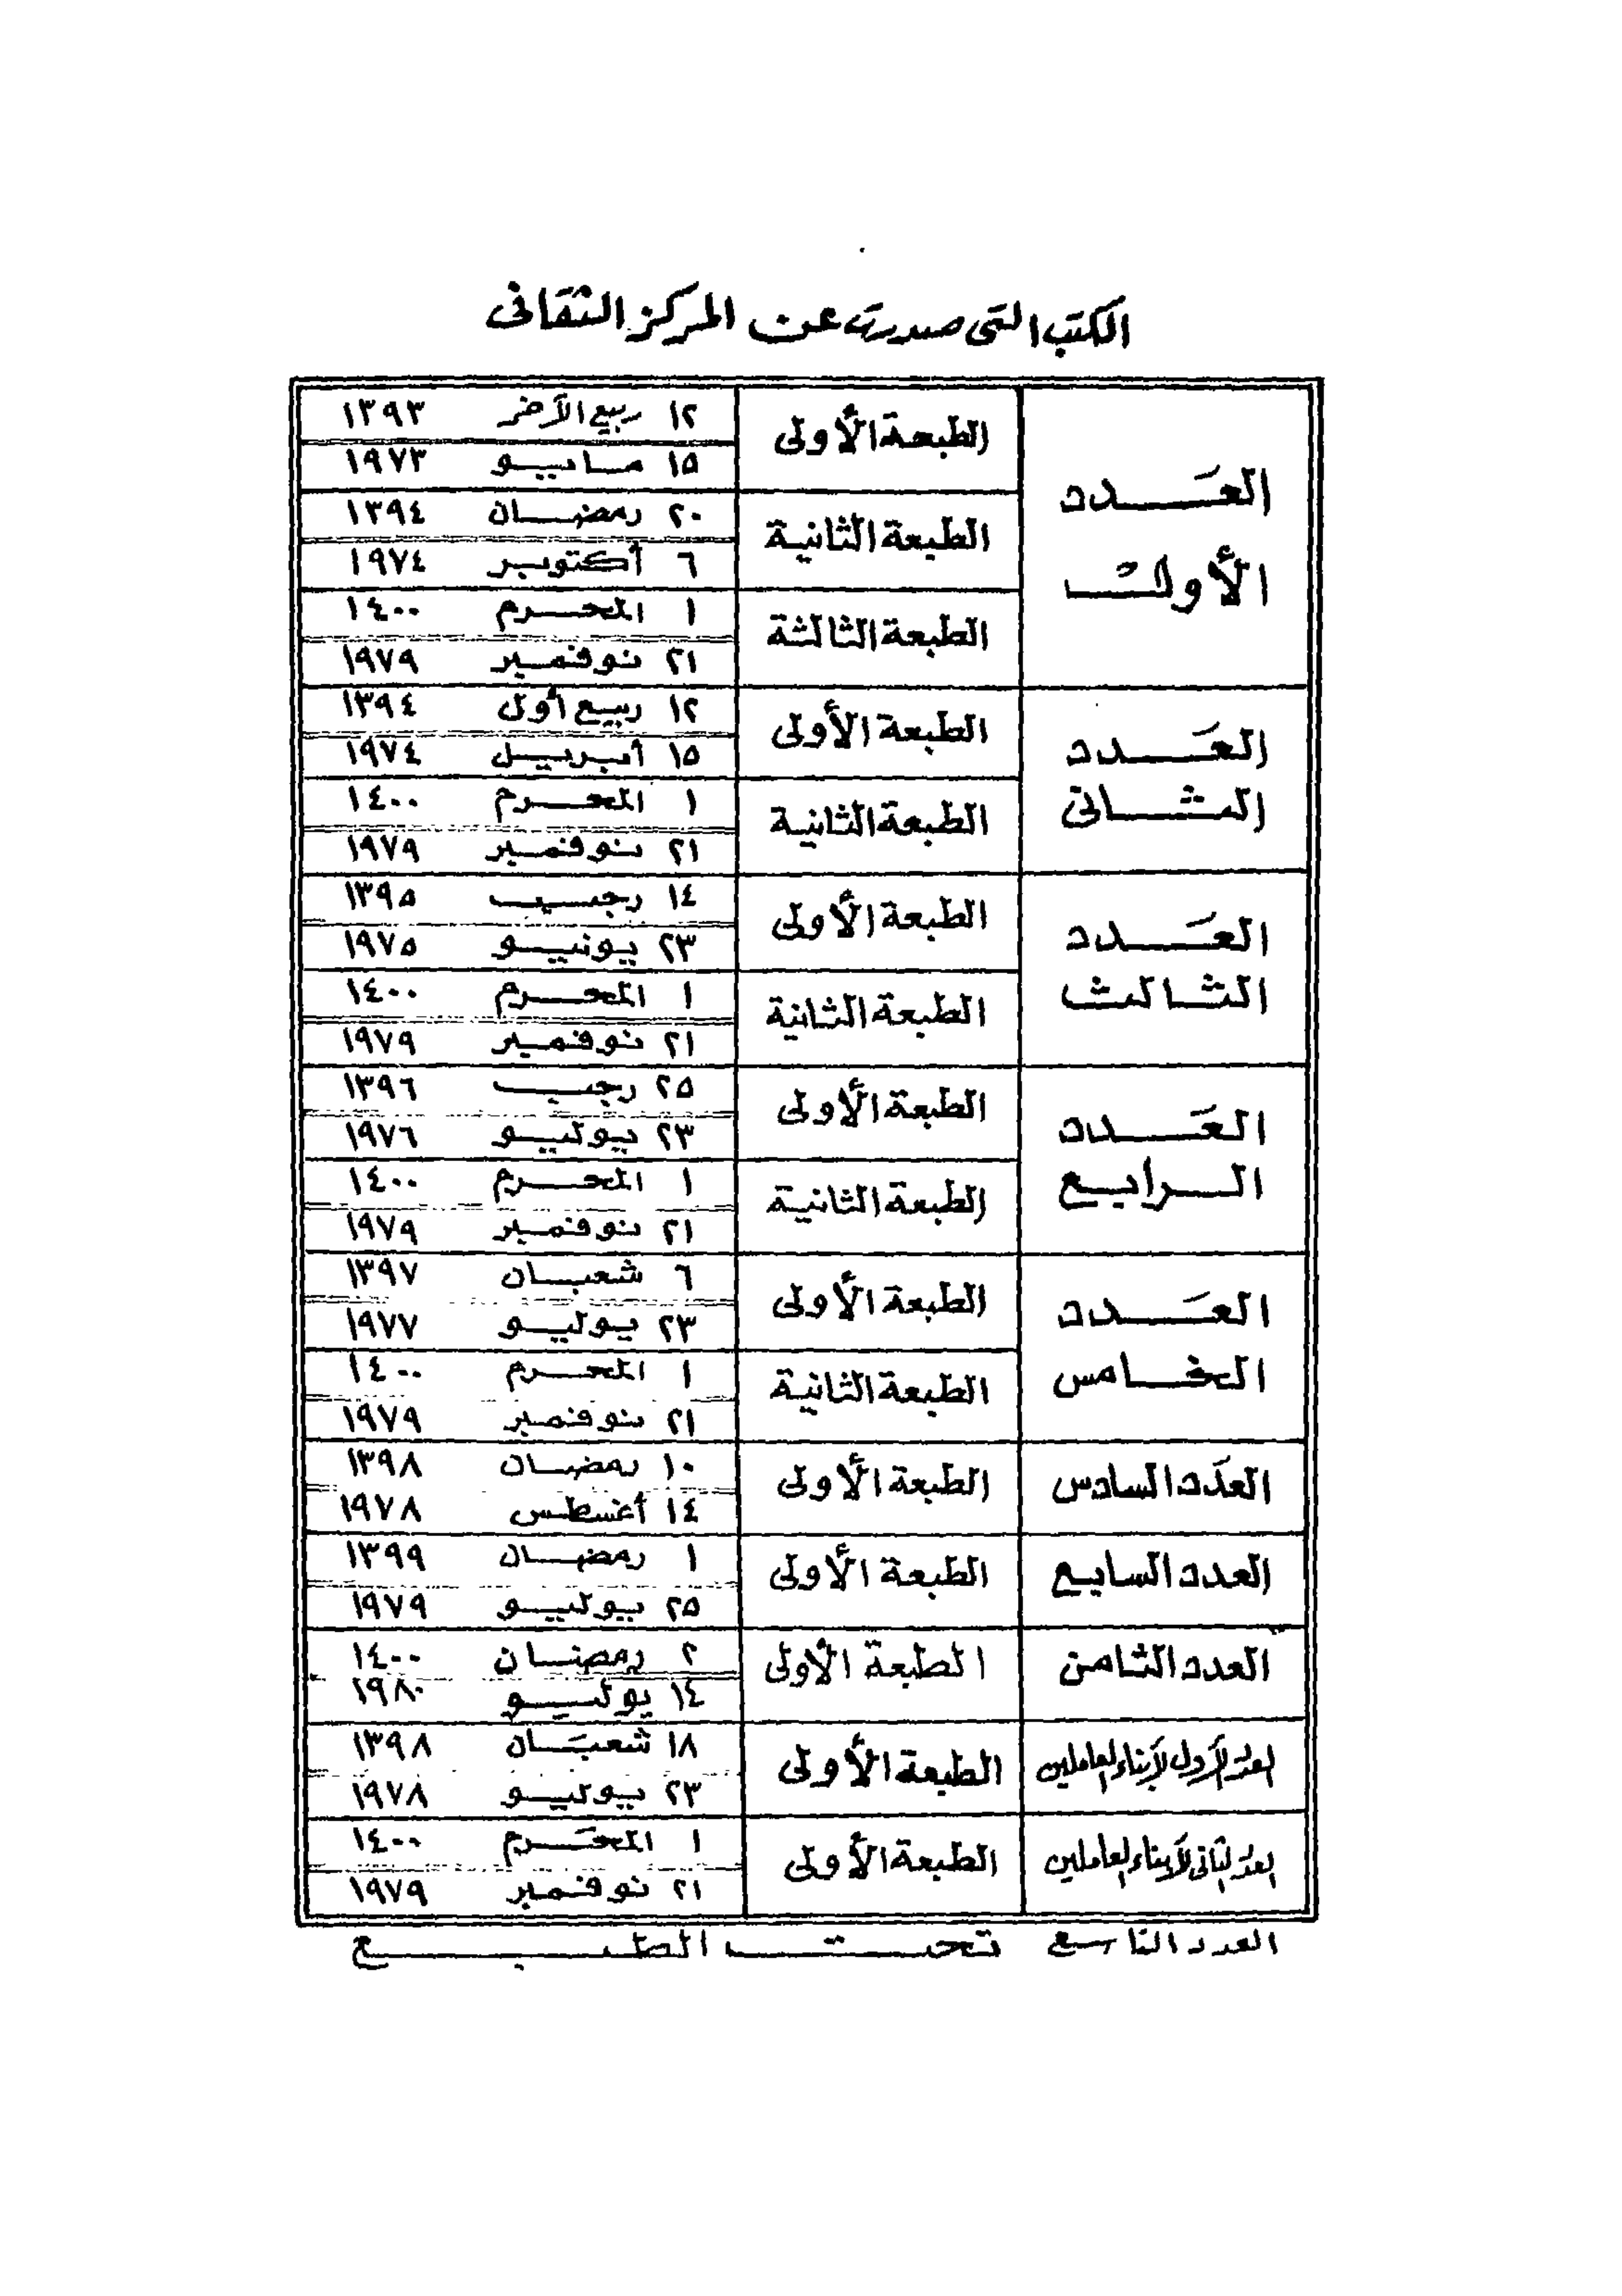 الكتب التى صدرت عن المركز الثقافى
العدد الأول
الطبعة الأولى
١٢ ربيع الآخر ١٣٩٣
١٥ مايو ١٩٧٣
الطبعة الثانية
٢٠ رمضان ١٣٩٤
٦ أكتوبر ١٩٧٤
الطبعة الثالثة
١ المحرم ١٤٠٠
٢١ نوفمبر ١٩٧٩
العدد الثانى
الطبعة الأولى
١٢ ربيع أول ١٣٩٤
١٥ أبريل ١٩٧٤
الطبعة الثانية
١ المحرم ١٤٠٠
٢١ نوفمبر ١٩٧٩
العدد الثالث
الطبعة الأولى
١٤ رجب ١٣٩٥
٢٣ يونيو ١٩٧٥
الطبعة الثانية
١ المحرم ١٤٠٠
٢١ نوفمبر ١٩٧٩
العدد الرابع
الطبعة الأولى
٢٥ رجب ١٣٩٦
٢٣ يوليو ١٩٧٦
الطبعة الثانية
١ المحرم ١٤٠٠
٢١ نوفمبر ١٩٧٩
العدد الخامس
الطبعة الأولى
٦ شعبان ١٣٩٧
٢٣ يوليو ١٩٧٧
الطبعة الثانية
١ المحرم ١٤٠٠
٢١ نوفمبر ١٩٧٩
العدد السادس
الطبعة الأولى
١٠ رمضان ١٣٩٨
١٤ أغسطس ١٩٧٨
العدد السابع
الطبعة الأولى
١ رمضان ١٣٩٩
٢٥ يوليو ١٩٧٩
العدد الثامن
الطبعة الأولى
٢ رمضان ١٤٠٠
١٤ يوليو ١٩٨٠
العدد الأول لأبناء العاملين
الطبعة الأولى
١٨ شعبان ١٣٩٨
٢٣ يوليو ١٩٧٨
العدد الثانى لأبناء العاملين
الطبعة الأولى
١ المحرم ١٤٠٠
٢١ نوفمبر ١٩٧٩
العدد التاسع تحت الطبع